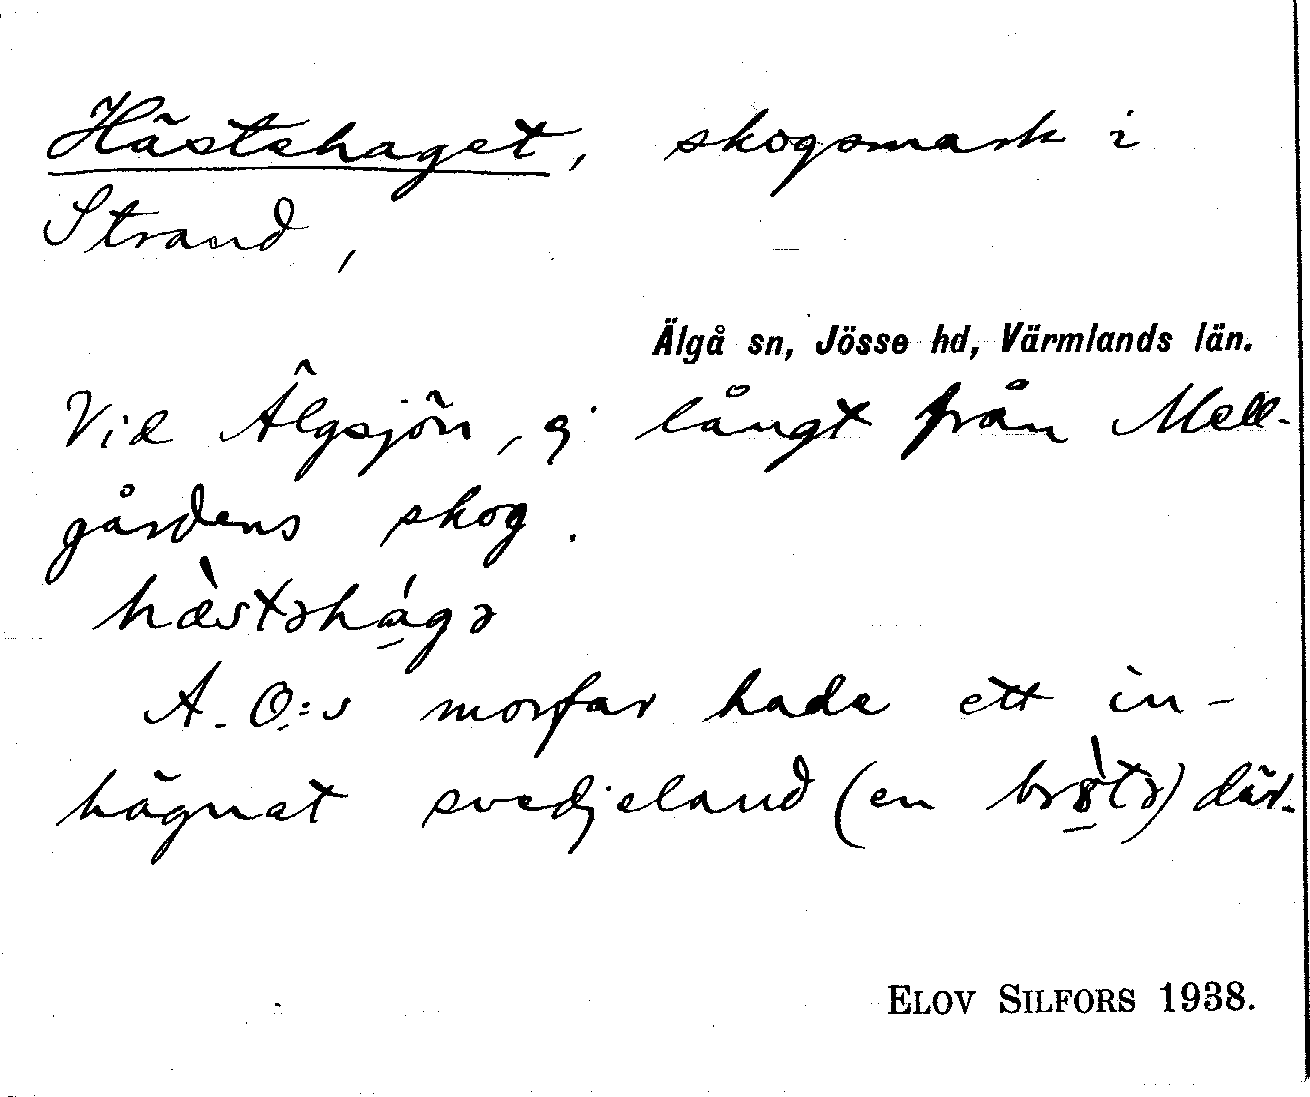 Hästehaget, skogsmark i
Strand,
Älgå sn, Jösse hd, Värmlands län.
Vid Älgsjön, ej långt från Mell-
gårdens skog.
hæ̀stəhág̱ə
A. O:s morfar hade ett in-
hägnat svedjeland (en brò̱tə) där.
ELOV SILFORS 1938.